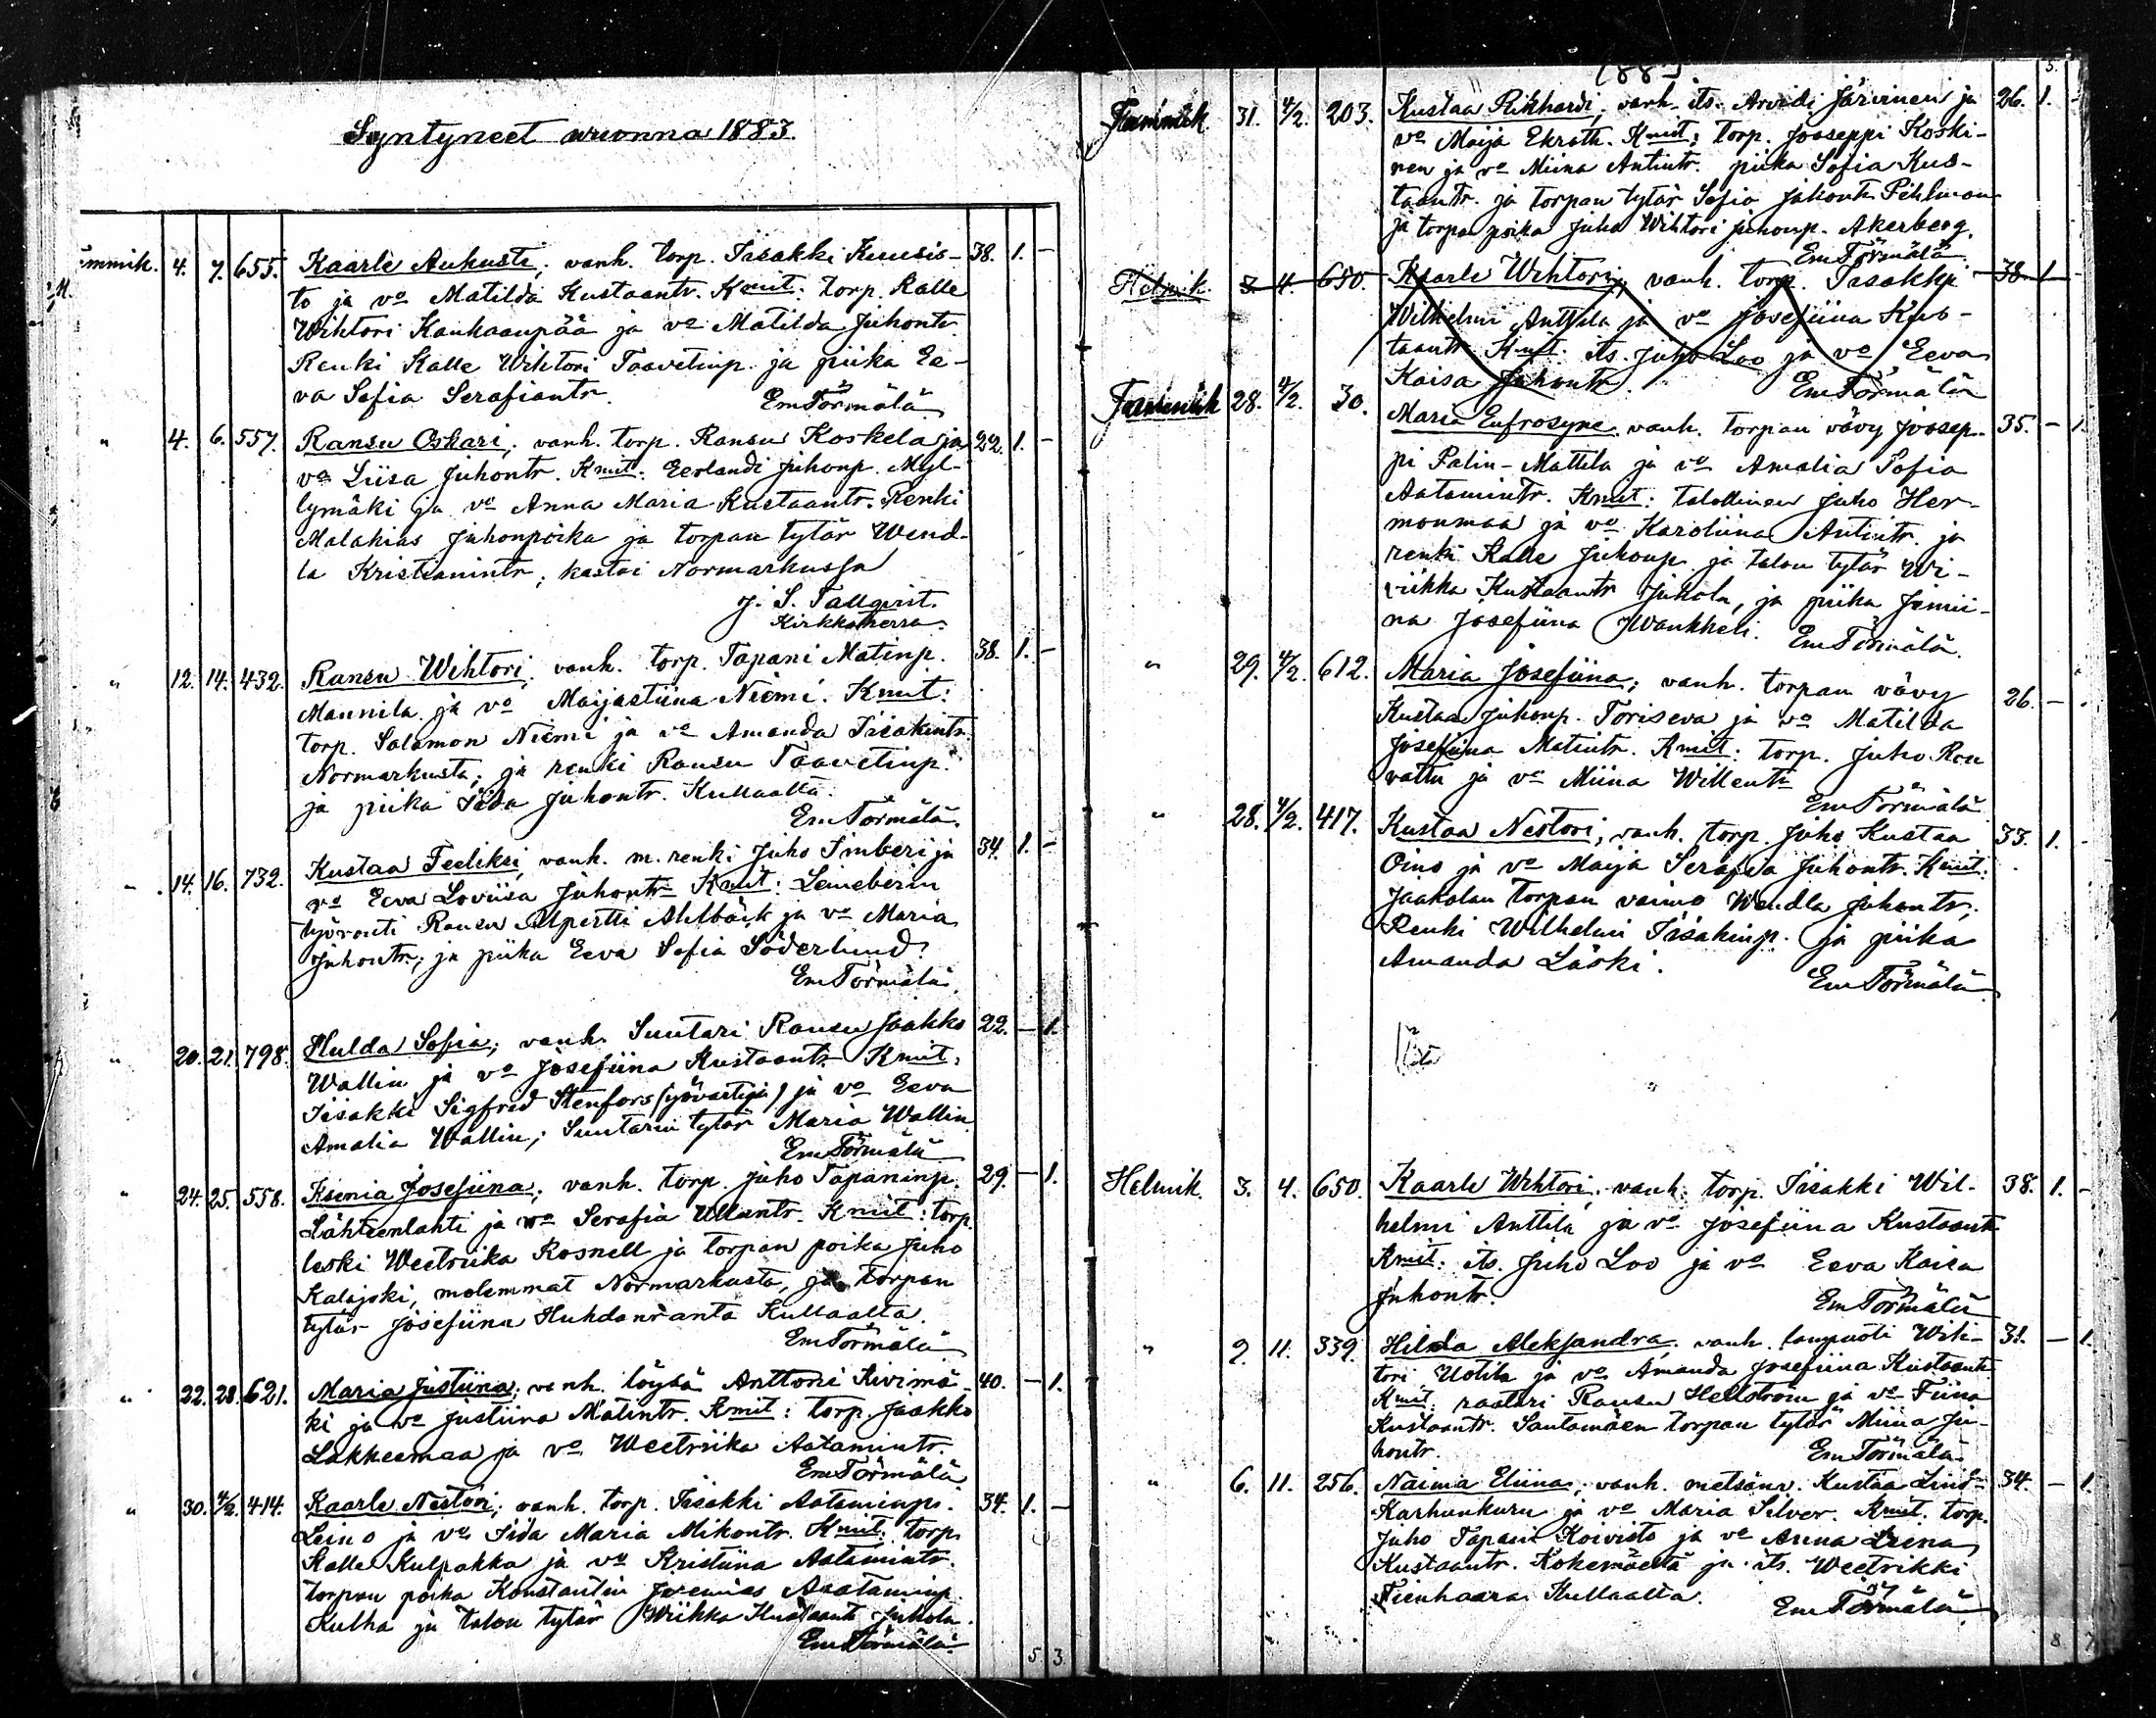 Syntyneet wuonna 1883.
4. 7. 655. Kaarle Aukusti; vanh. torp. Iisakki Kuusis- 38. 1. -
to ja vo Matilda Kustaantr. Kmit: torp. Kalle
Wihtori Kankaanpää ja vo Matilda Juhontr
Renki Kalle Wihtori Taavetinp. ja piika Ee-
va Sofia Serafiantr. Em Törmälä
" 4. 6. 557. Ransu Oskari; vanh. torp. Ransu Koskela ja 22. 1. -
vo Liisa Juhontr. Kmit: Eerlandi Juhonp. Myl-
lymäki ja vo Anna Maria Kustaantr. Renki
Malakias Juhonpoika ja torpan tytär Wend-
la Kristianintr; kastoi Normarkussa
J. S. Tallqvist.
Kirkkoherra.
" 12. 14. 432. Ransu Wihtori; vanh. torp. Tapani Matinp. 38. 1. -
Mannila ja vo Maijastiina Niemi. Kmit:
torp. Salamon Niemi ja vo Amanda Iisakintr.
Normarkusta; ja renki Ransu Taavetinp.
ja piika Iida Juhontr. Kullaalta.
Em Törmälä.
" 14. 16. 732. Kustaa Feeliksi, vanh. m. renki Juho Imberi ja 34. 1. -
vo Eeva Loviisa Juhontr Kmit: Leineberin
työvouti Ransu Alpertti Ahlbäck ja vo Maria
Juhontr; ja piika Eeva Sofia Söderlund.
Em Törmälä.
" 20. 21. 798. Hulda Sofia; vanh. Suutari Ransu Jaakko 22. - 1.
Wallin ja vo Josefiina Kustaantr. Kmit.
Iisakki Sigfrid Stenfors (yövartija) ja vo Eeva
Amalia Wallin; Suutarin tytär Maria Wallin
Em Törmälä
" 24. 25. 558. Ksenia Josefiina; vanh. torp. Juho Tapaninp. 29. - 1.
Lähteenlahti ja vo Serafia Ullantr. Kmit: torp.
leski Weetriika Rosnell ja torpan poika Juho
Kalajoki, molemmat Normarkusta, ja torpan
tytär Josefiina Huhdanranta Kullaalta.
Em Törmälä
" 22. 28. 621. Maria Justiina; vanh. löysä Anttoni Kivimä- 40. - 1.
ki ja vo Justiina Matintr. Kmit: torp. Jaakko
Lakkeemaa ja vo Weetriika Aatamintr.
Em Törmälä
" 30. 4/2. 414. Kaarle Nestori; vanh. torp. Iisakki Aataminp. 34. 1. -
Leino ja vo Iida Maria Mikontr. Kmit: torp.
Kalle Kulpakka ja vo Kristiina Aatamintr.
torpan poika Konstantin Jeremias Aataminp
Kulha ja talon tytär Wiikka Kustaantr Juhola.
Em Törmälä
5 3
5.
Tammik. 31. 4/2. 203. Kustaa Rikhardi; vanh. its. Arvidi Järvinen ja 26. 1. -
vo Maija Ekroth. Kmit: torp. Jooseppi Koski-
nen ja vo Miina Antintr. piika Sofia Kus-
taantr. ja torpan tytär Sofia Juhontr Pihlman
ja torpan poika Juho Wihtori Juhonp. Akerberg.
Em Törmälä
Helmik. 3. 4. 650. Kaarle Wihtori; vanh. torp. Iisakki 38. 1 -
Wilhelmi Anttila ja vo Josefiina Kus-
taantr. Kmit: its. Juho Loo ja vo Eeva
Kaisa Juhontr. Em Törmälä
Tammik 28. 4/2. 30. Maria Eufrosyne. vanh. torpan vävy Joosep- 35. - 1.
pi Palin-Mattila ja vo Amalia Sofia
Aatamintr. Kmit: talollinen Juho Her-
monmaa ja vo Karoliina Antintr. ja
renki Kalle Juhonp. ja talon tytär Wi-
viikka Kustaantr Juhola, ja piika Jemii-
na Josefiina Wankheli. Em Törmälä.
" 29. 4/2. 612. Maria Josefiina; vanh. torpan vävy 26. -
Kustaa Juhonp. Toriseva ja vo Matilda
Josefiina Matintr. Kmit: torp. Juho Rou
vattu ja vo Miina Willentr
Em Törmälä
" 28. 4/2. 417. Kustaa Nestori, vanh. torp. Juho Kustaa 33. 1.
Oino ja vo Maija Serafia Juhontr. Kmit:
Jaakolan torpan vaimo Wendla Juhontr;
Renki Wilhelmi Iisakinp. ja piika
Amanda Läski. Em Törmälä
Helmik. 3. 4. 650. Kaarle Wihtori; vanh. torp. Iisakki Wil- 38. 1. -
helmi Anttila ja vo Josefiina Kustaantr
Kmit: its. Juho Loo ja vo Eeva Kaisa
Juhontr. Em Törmälä
" 9. 11. 339. Hilda Aleksandra; vanh. lampuoti Wih- 31. - 1.
tori Uotila ja vo Amanda Josefiina Kustaantr.
Kmit: raatari Ransu Hellström ja vo Fiina
Kustaantr. Santamäen torpan tytär Miina Ju-
hontr. Em Törmälä
" 6. 11. 256. Naima Eliina; vanh. metsänv. Kustaa Lind- 34 - 1.
Karhunkuru ja vo Maria Silver. Kmit. torp.
Juho Tapani Koivisto ja vo Anna Leena
Kustaantr. Kokemäeltä ja its. Weetrikki
Tienhaara Kullaalta. Em Törmälä
8 7